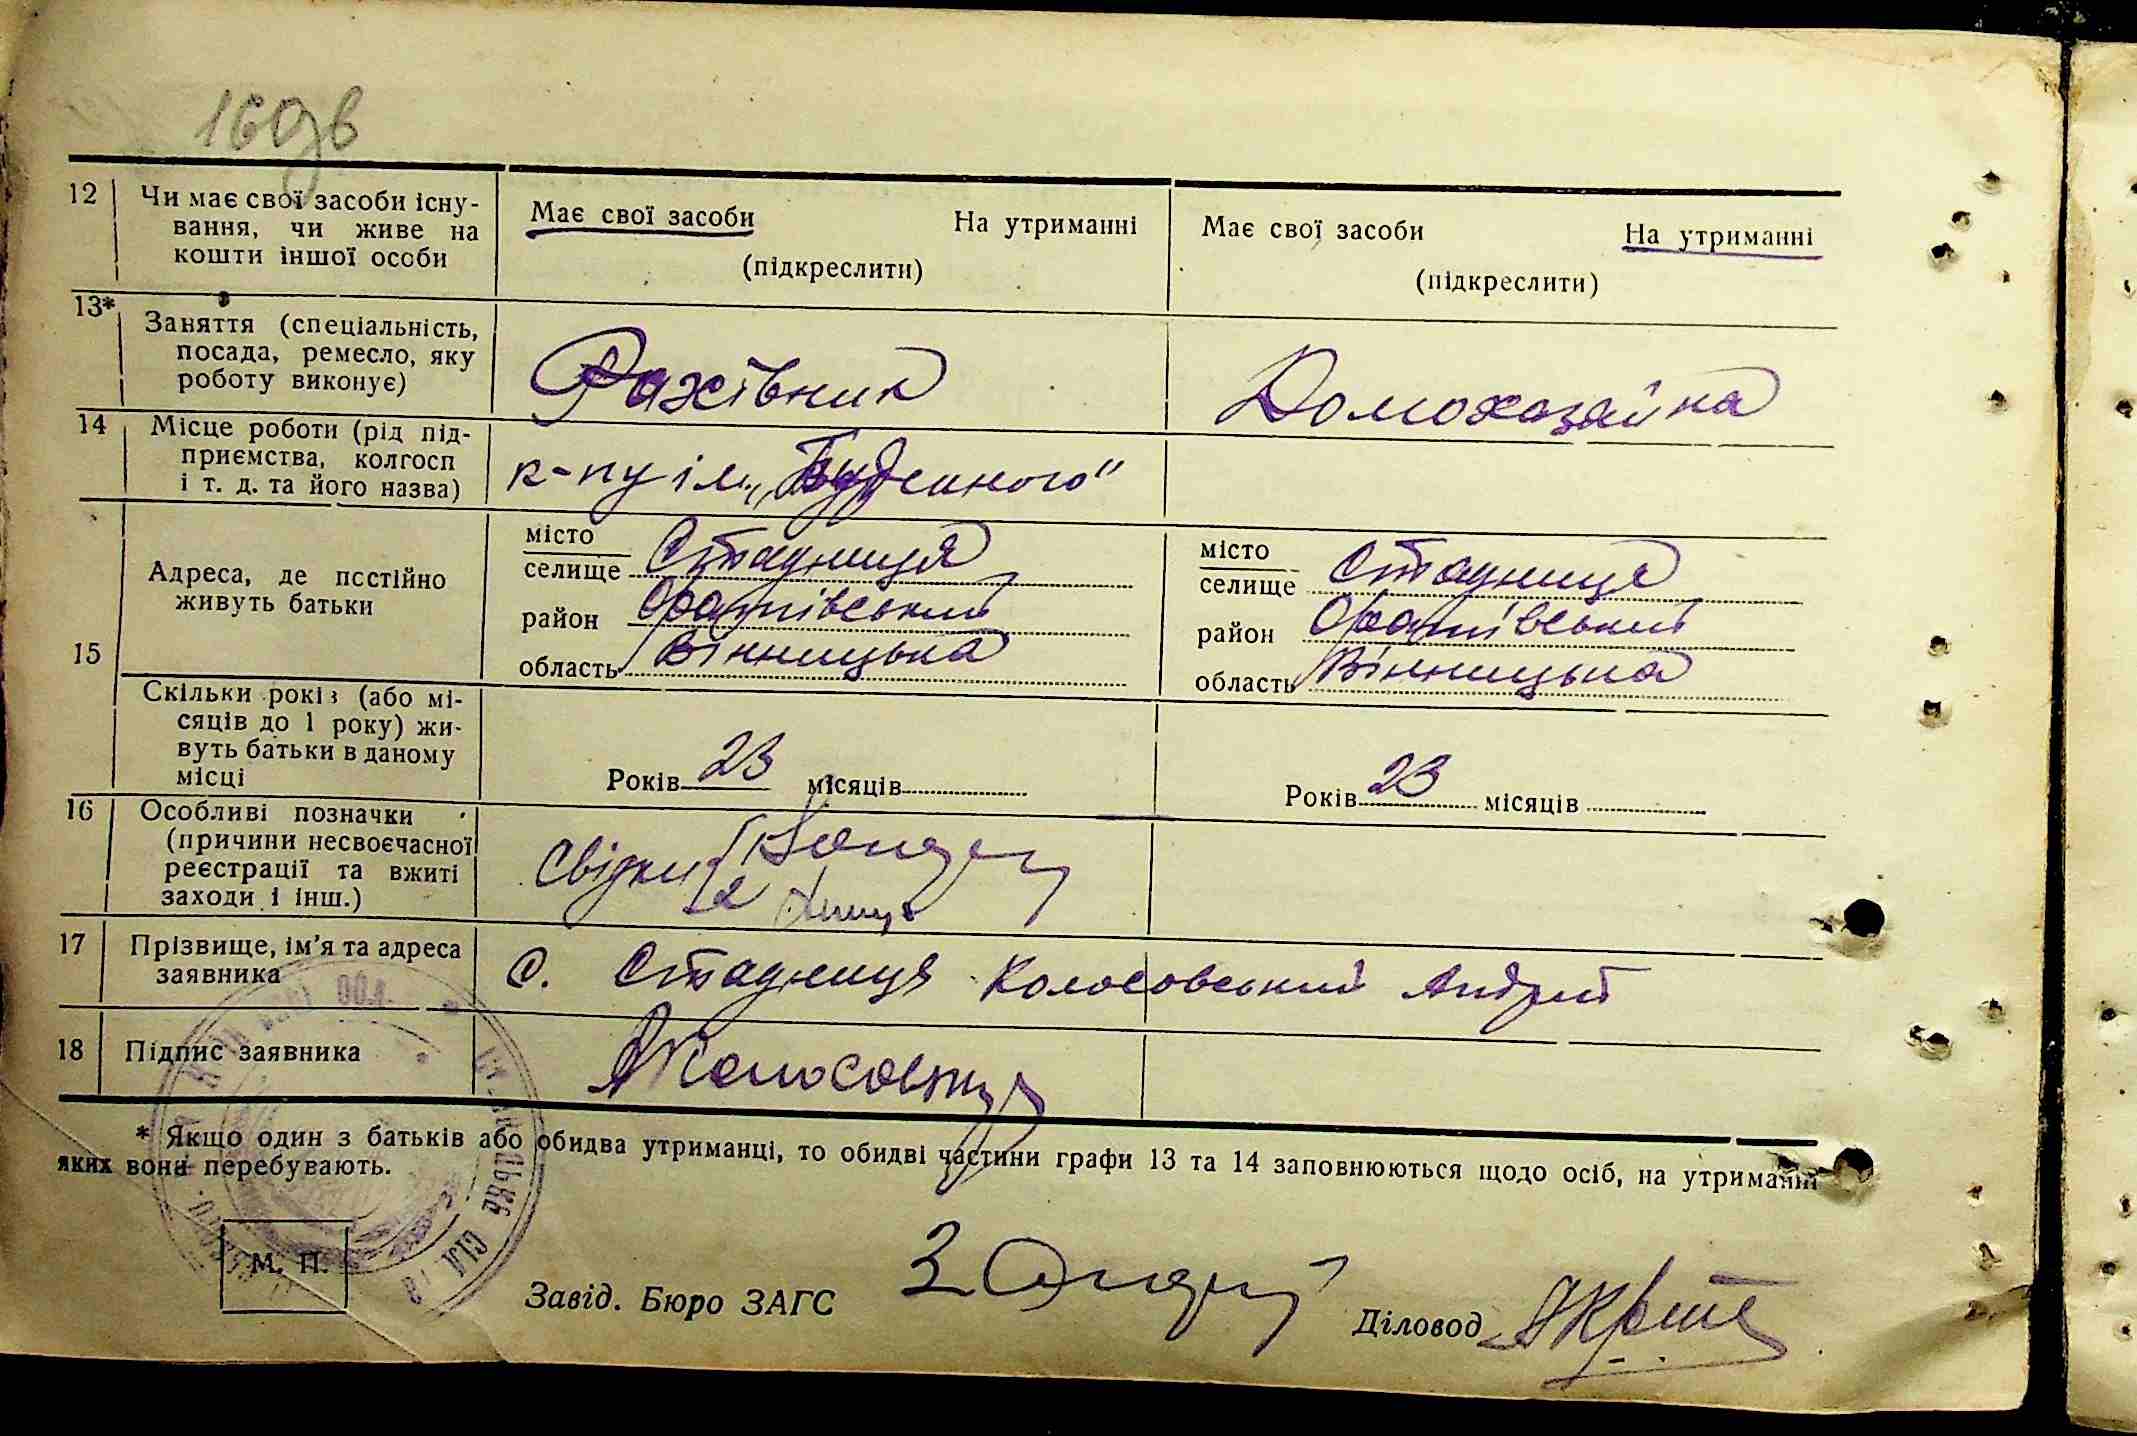 12 Чи має свої засоби існу-
вання, чи живе на
кошти іншої особи
Має свої засоби На утриманні
(підкреслити)
Має свої засоби На утриманні
(підкреслити)
13* Заняття (спеціальність,
посада, ремесло, яку
роботу виконує)
Рахівник
Домохазайка
14 Місце роботи (рід під-
приємства, колгосп
і т. д. та його назва)
к-пу ім. „Буденного"
15 Адреса, де постійно
живуть батьки
місто
селище Стадниця
район Оратівський
область Вінницька
місто
селище Стадниця
район Оратівський
область Вінницька
Скільки років (або мі-
сяців до 1 року) жи-
вуть батьки в даному
місці
Років 23 місяців
Років 23 місяців
16 Особливі позначки
(причини несвоєчасної
реєстрації та вжиті
заходи і інш.)
Свідки 1
2
17 Прізвище, ім'я та адреса
заявника
с. Стадниця Колосовський Андрій
18 Підпис заявника
* Якщо один з батьків або обидва утриманці, то обидві частини графи 13 та 14 заповнюються щодо осіб, на утриманні
яких вони перебувають.
М. П.
Завід. Бюро ЗАГС
Діловод